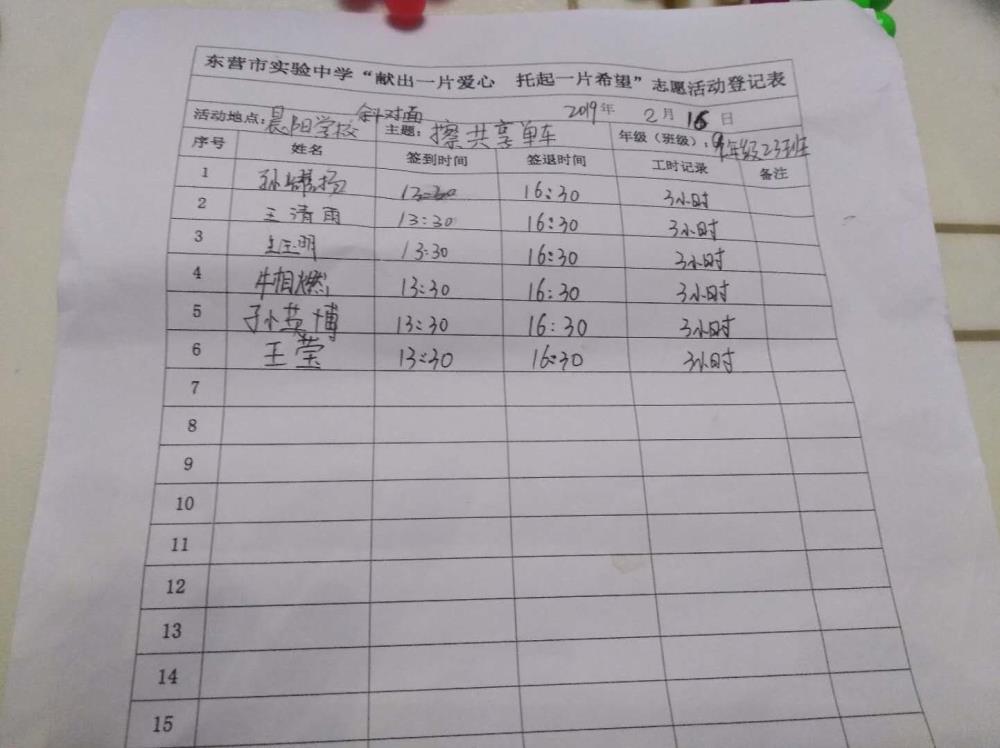 东营市实验中学“献出一片爱心 托起一片希望”志愿活动登记表
活动地点：晨阳学校 斜对面 主题：擦共享单车 2019年 2月 16日 年级（班级）：九年级23班
序号 姓名 签到时间 签退时间 工时记录 备注
1 13:30 16:30 3小时
2 王清雨 13:30 16:30 3小时
3 13:30 16:30 3小时
4 牛相燃 13:30 16:30 3小时
5 孙英博 13:30 16:30 3小时
6 王莹 13:30 16:30 3小时
7
8
9
10
11
12
13
14
15